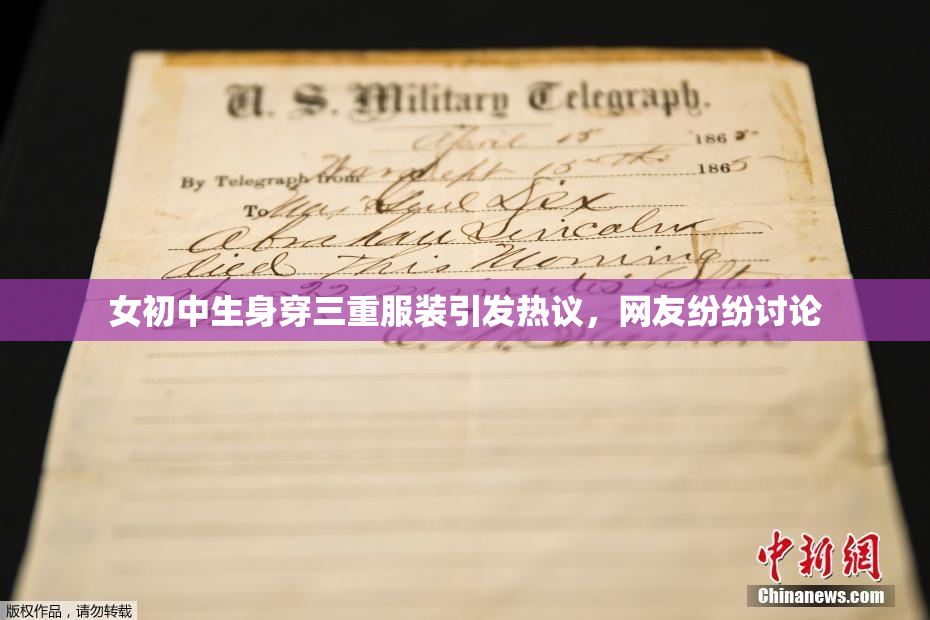 U. S. Military Telegraph.
April 15 1865
By Telegraph from War Dept 15th 1865
To Maj Genl Dix
Abraham Lincoln
died This Morning
22 minutes after
女初中生身穿三重服装引发热议，网友纷纷讨论
E. M. Stanton
中新网
Chinanews.com
版权作品，请勿转载